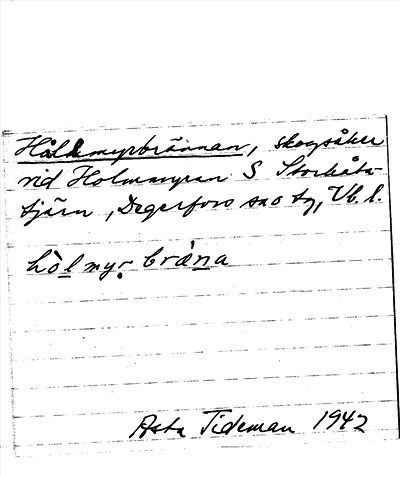 Hålmyrbrännan, skogsåker
vid Holmmyran S Storkåta-
tjärn, Degerfors sn o tg, Vb. l.
hòlmyṛbràna
Asta Tideman 1942